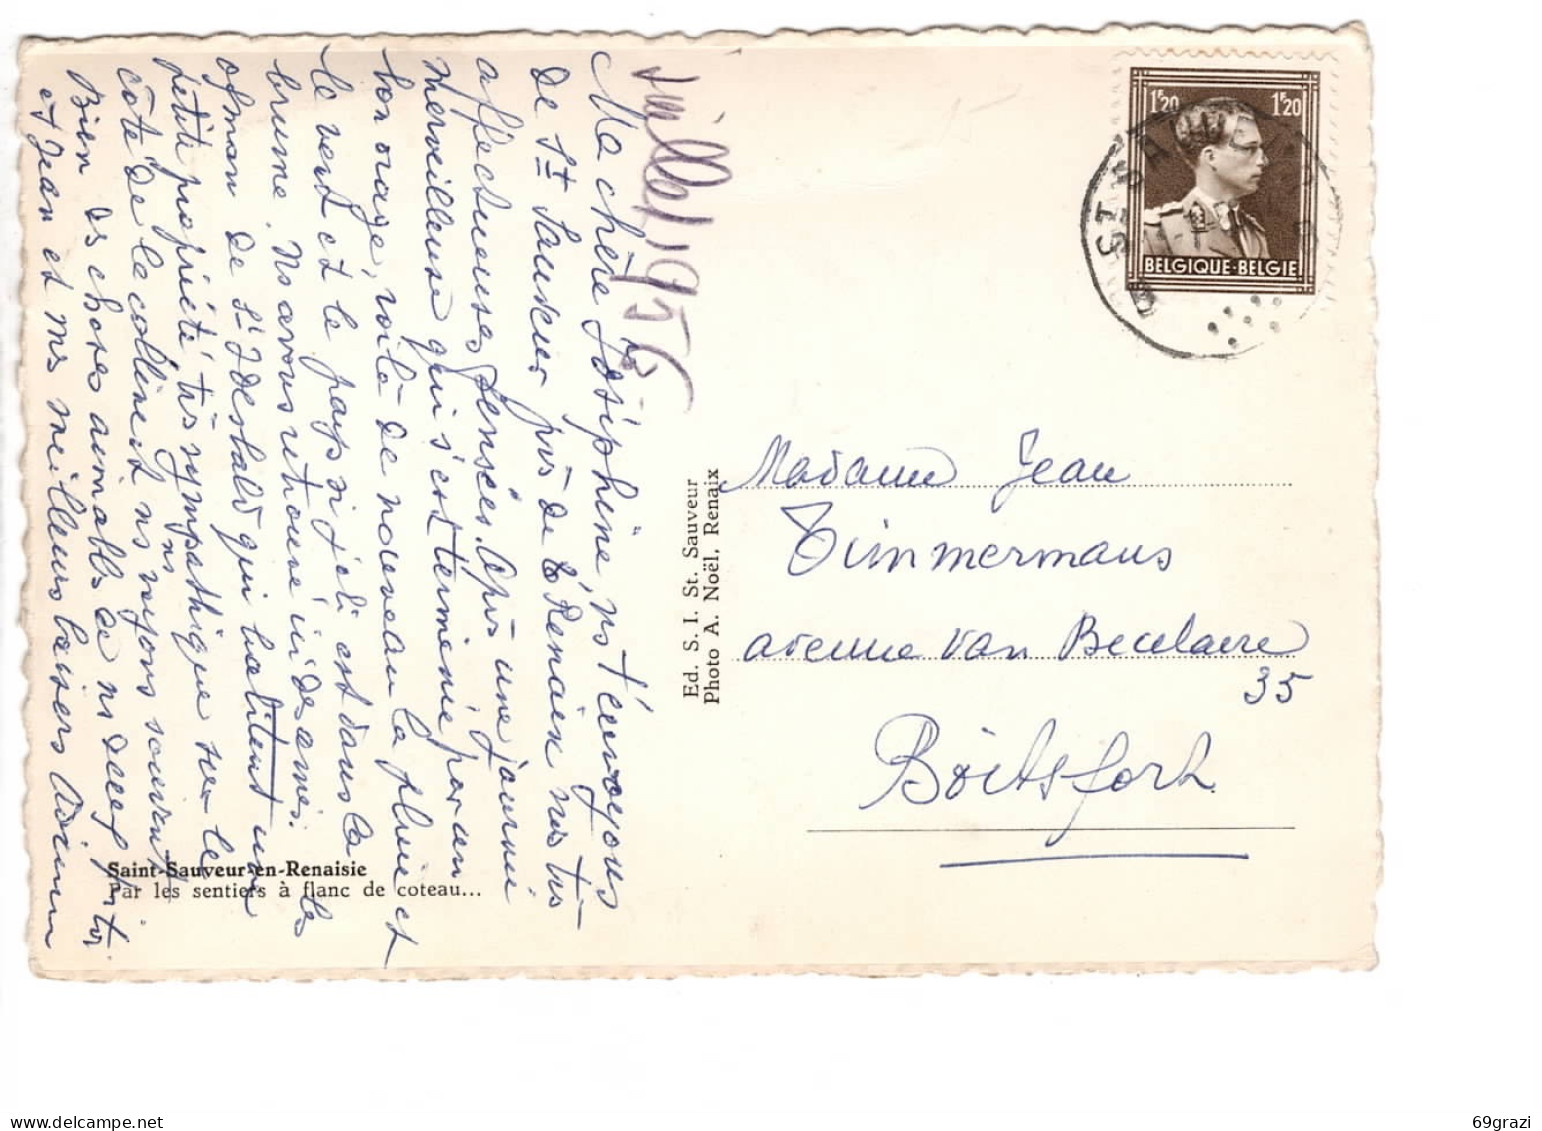 juillet 1956
Ma chère Joséphine, ns t'envoyons
de St Sauveur près de Renaix nos très
affectueuses pensées. Après une journée
merveilleuse qui s'est terminée par un
bon orage, voilà de nouveau la pluie et
le vent et le pays si joli est dans la
brume. Ns avons retrouvé ici des amis: les
de St Idesbald qui habitent une
petite propriété très sympathique sur le
côté de la colline et ns ns voyons souvent
Bien des choses aimables de ns deux pr toi
et Jean et mes meilleurs baisers
Saint-Sauveur-en-Renaisie
Par les sentiers à flanc de coteau...
Ed. S. I. St. Sauveur
Photo A. Noël, Renaix
1F20 1F20
BELGIQUE·BELGIE
Madame Jean
Timmermans
avenue Van Becelaere
35
Boitsfort
69grazi